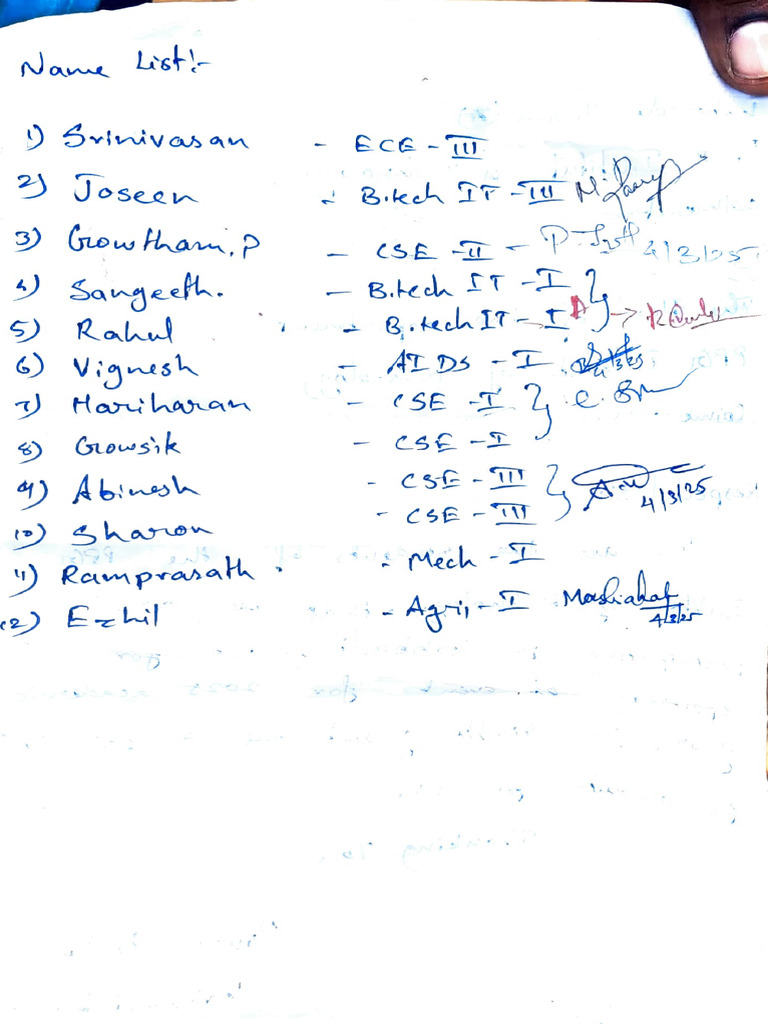 Name List:-
1) Srinivasan - ECE - III
2) Joseen - B.tech IT - III
3) Gowtham.P - CSE - II - 4/3/25
4) Sangeeth. - B.tech IT - I
5) Rahul - B.tech IT - I A
6) Vignesh - AIDS - I 4/3/25
7) Hariharan - CSE - I
8) Gowsik - CSE - I
9) Abinesh - CSE - III 4/3/25
10) Sharon - CSE - III
11) Ramprasath - Mech - I
12) Ezhil - Agri, - I 4/3/25